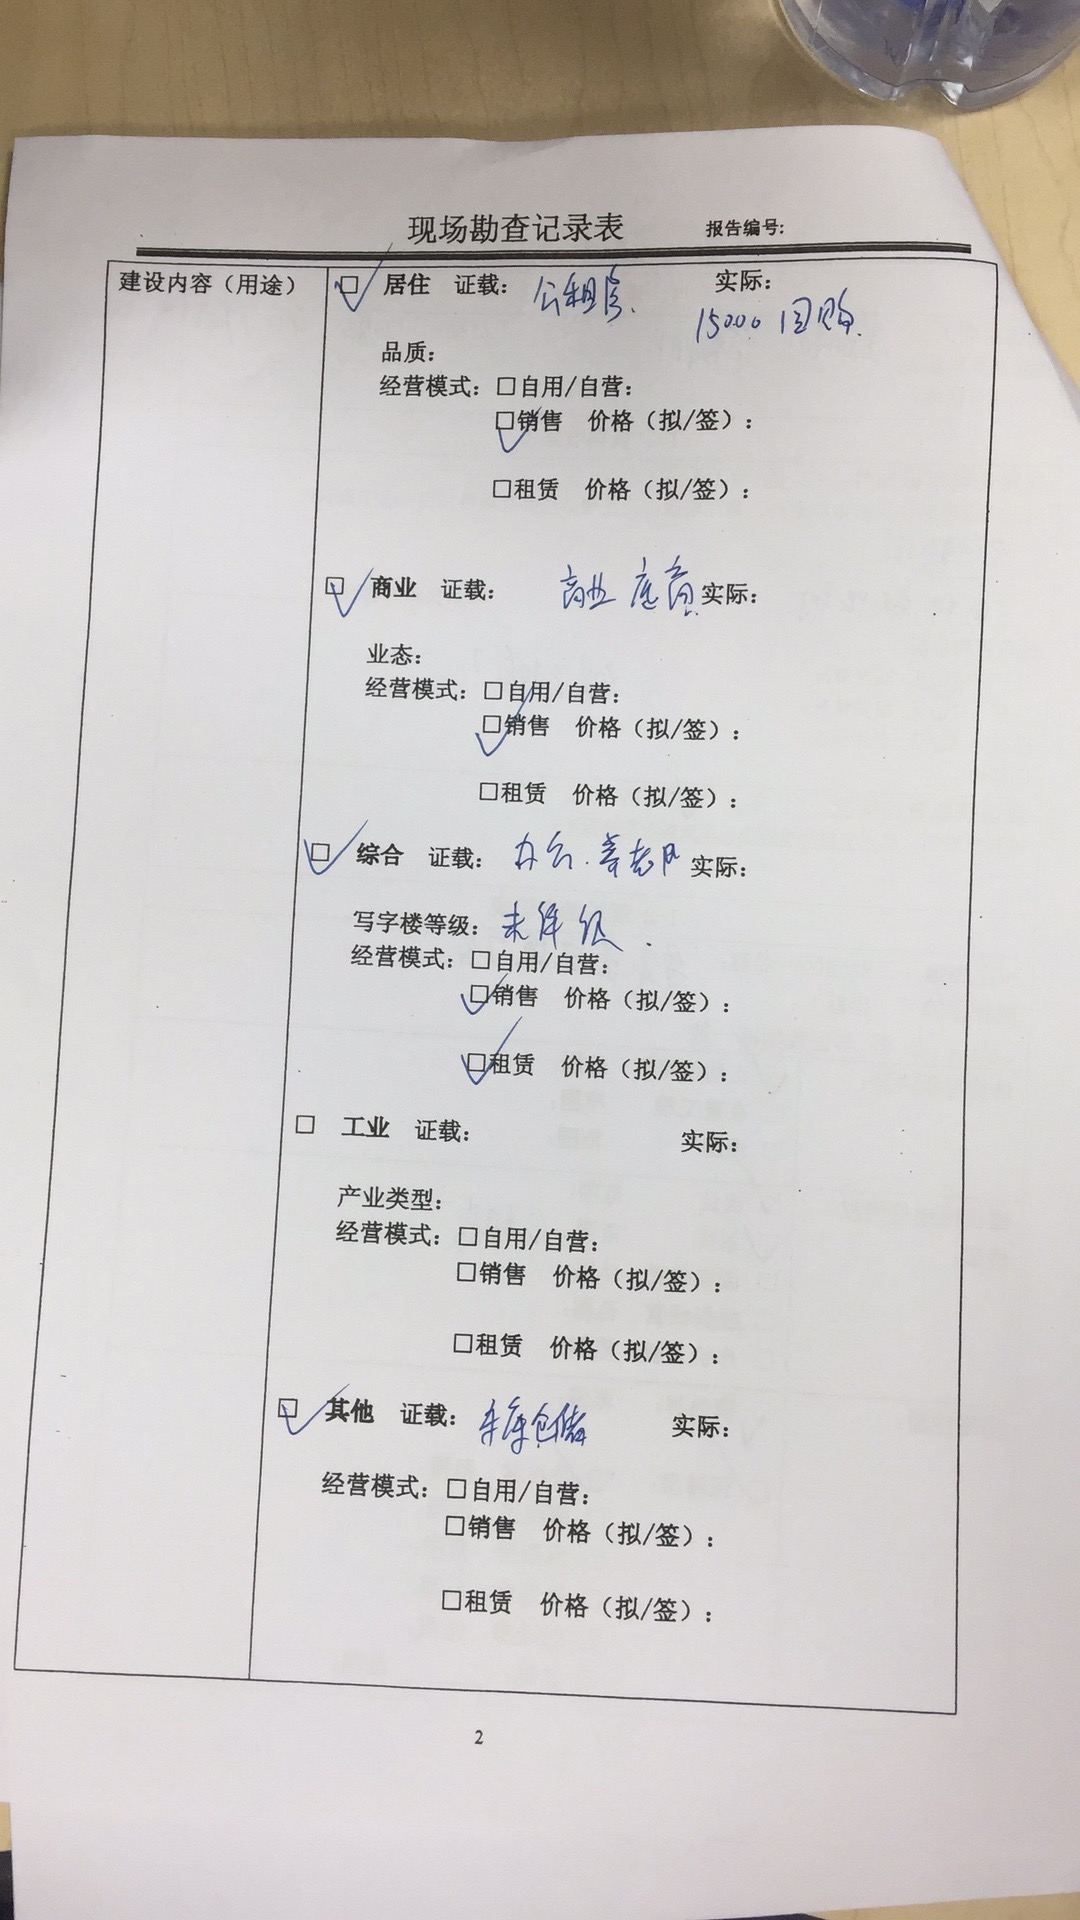 现场勘查记录表 报告编号:
建设内容（用途） ☑ 居住 证载: 公租房. 实际:
15000 回购.
品质:
经营模式: □自用/自营:
☑销售 价格（拟/签）:
□租赁 价格（拟/签）:
☑ 商业 证载: 商业 底商 实际:
业态:
经营模式: □自用/自营:
☑销售 价格（拟/签）:
□租赁 价格（拟/签）:
☑ 综合 证载: 办公. 实际:
写字楼等级: 未评级.
经营模式: □自用/自营:
☑销售 价格（拟/签）:
☑租赁 价格（拟/签）:
□ 工业 证载: 实际:
产业类型:
经营模式: □自用/自营:
□销售 价格（拟/签）:
□租赁 价格（拟/签）:
☑ 其他 证载: 车库仓储 实际:
经营模式: □自用/自营:
□销售 价格（拟/签）:
□租赁 价格（拟/签）:
2